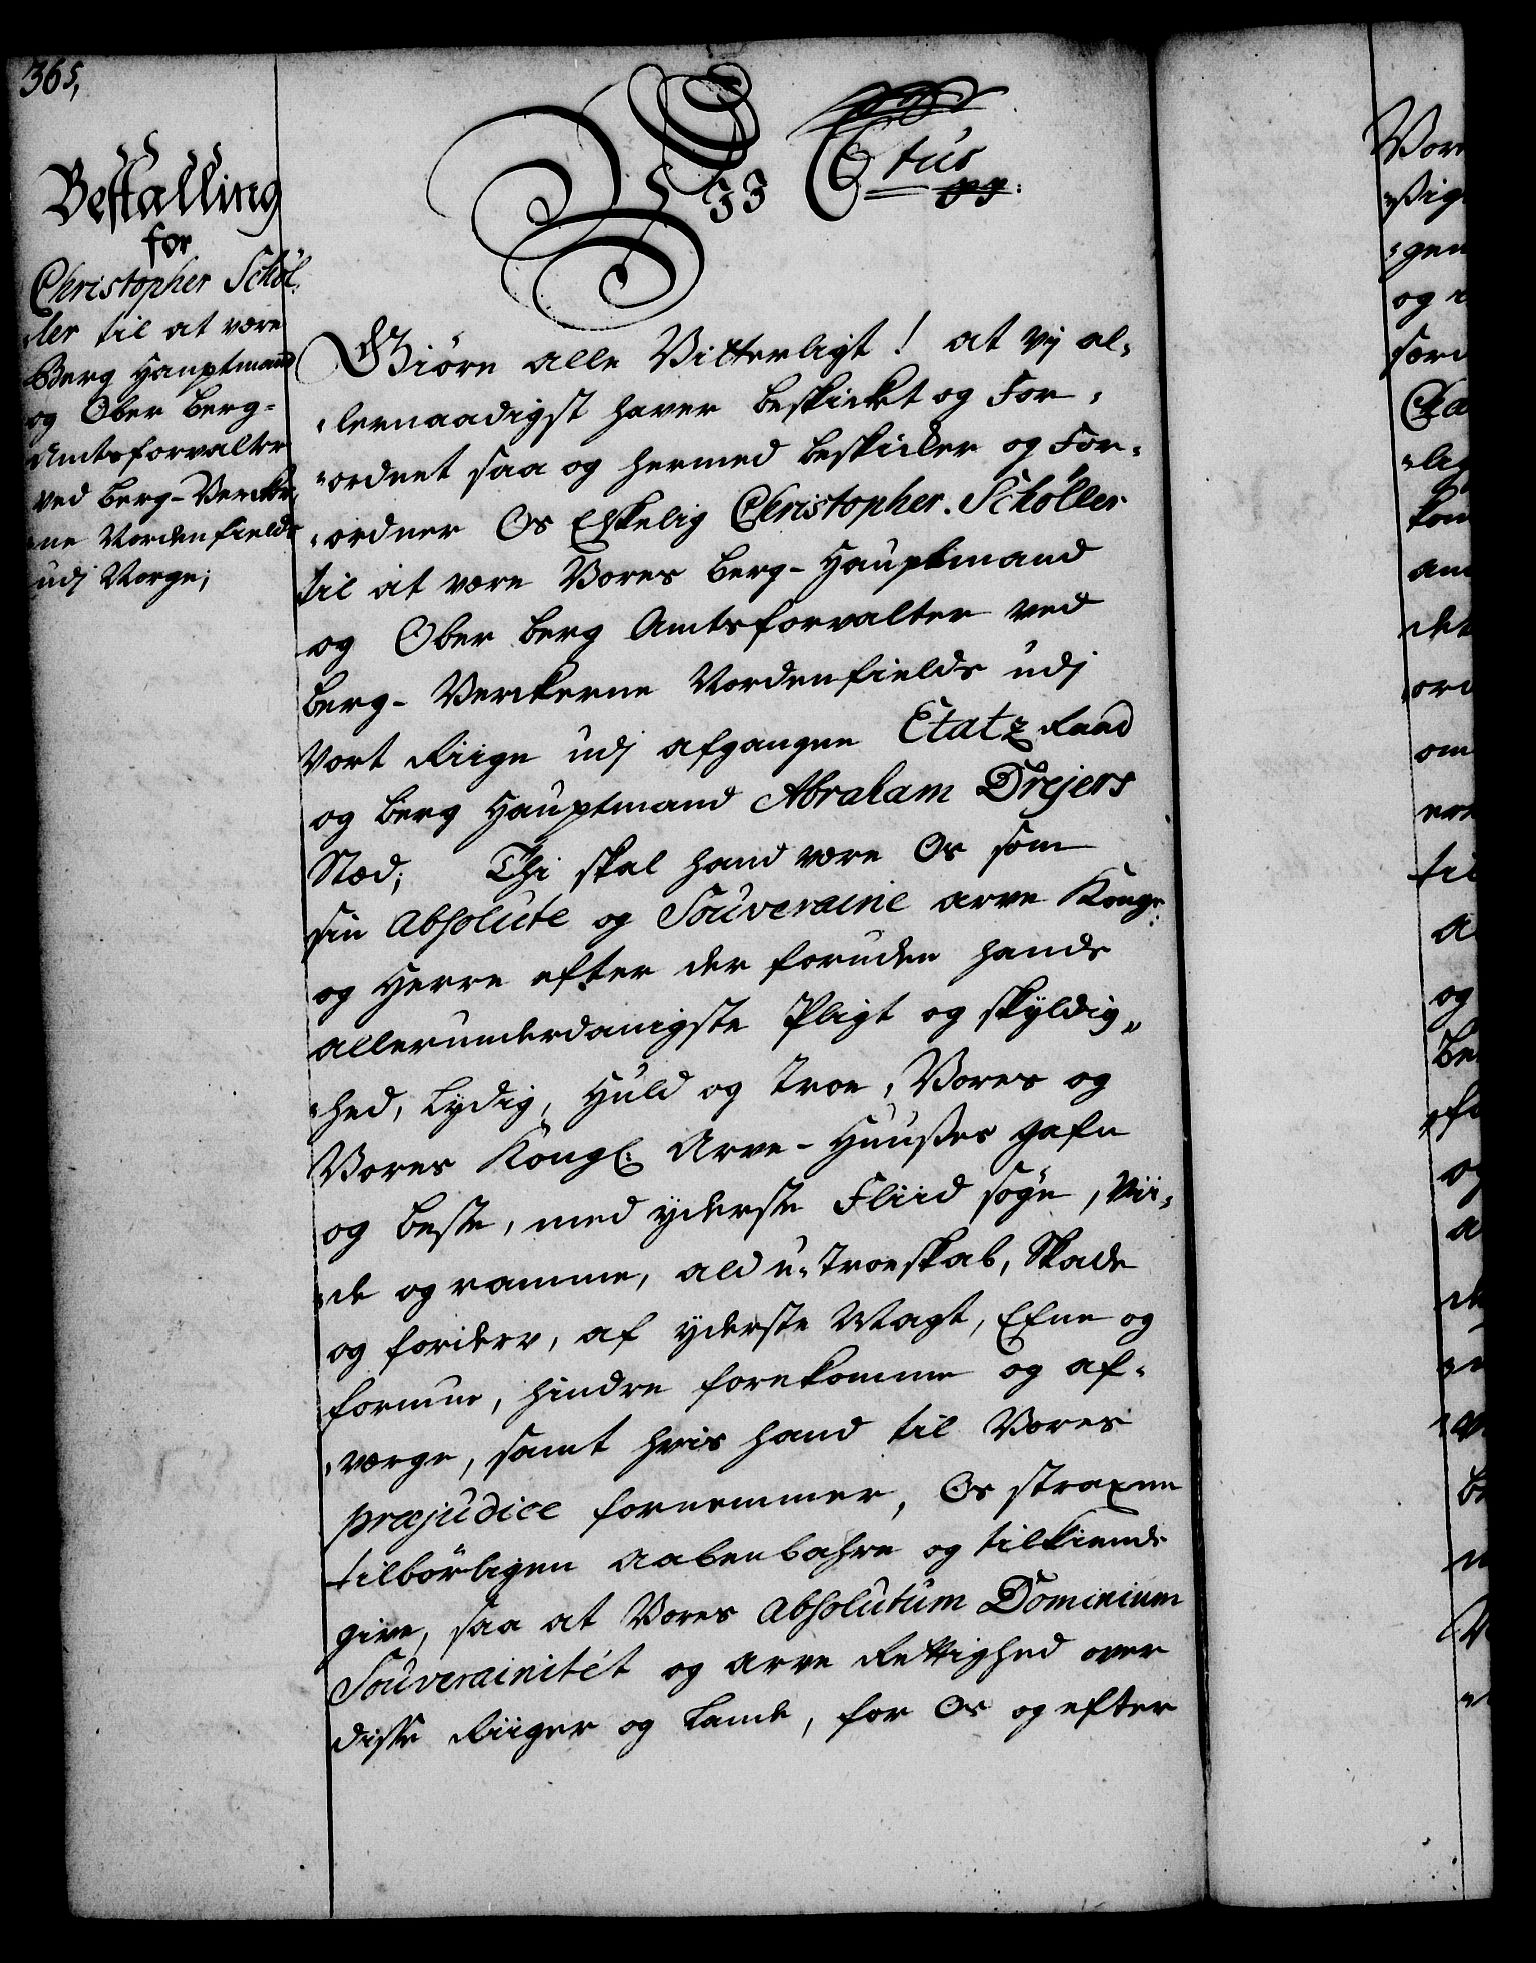 365,
Bestalling
for
Christopher Schøl¬
ler til at være
Berg Hauptmand
og Ober Berg-
Amtsforvalter
ved Berg-Vercker¬
ne Nordenfields
udj Norge;
Vj C 6tus
Giøre alle Vitterligt! at vj al¬
lernaadigst haver beskicket og For¬
ordnet saa og hermed beskicker og For¬
ordner Os Elskelig Christopher Schøller
til at være Vores Berg-Hauptmand
og Ober Berg Amtsforvalter ved
Berg-Verckerne Nordenfields udj
Vort Riige udj afgangne Etatz Raad
og Berg Hauptmand Abraham Drejers
Stæd; Thi skal hand være Os som
sin absolute og Souveraine arve Konge
og Herre efter der foruden hands
allerunderdanigste Pligt og skyldig¬
hed, Lydig, Huld og troe, Vores og
Vores Kongl: Arve-Huuses gafn
og beste, med yderste Fliid søge, vii¬
de og ramme, ald u-troeskab, Skade
og forderv, af yderste Magt, Efne og
formue, hindre forekomme og af¬
værge, samt hvis hand til Vores
præjudice fornemmer, Os straxen
tilbørligen aabenbahre og tilkiende
give, saa at Vores absolutum Dominium
Souverainitét og arve Rettighed over
disse Riiger og Lande, for Os og efter